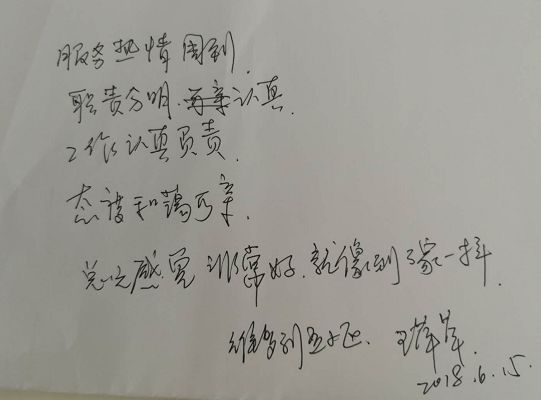 服务热情周到.
职责分明.认真.
工作认真负责.
态度和蔼可亲.
总之感觉非常好.就像到了家一样.
维多利亚社区.王莘莘.
2018.6.15.